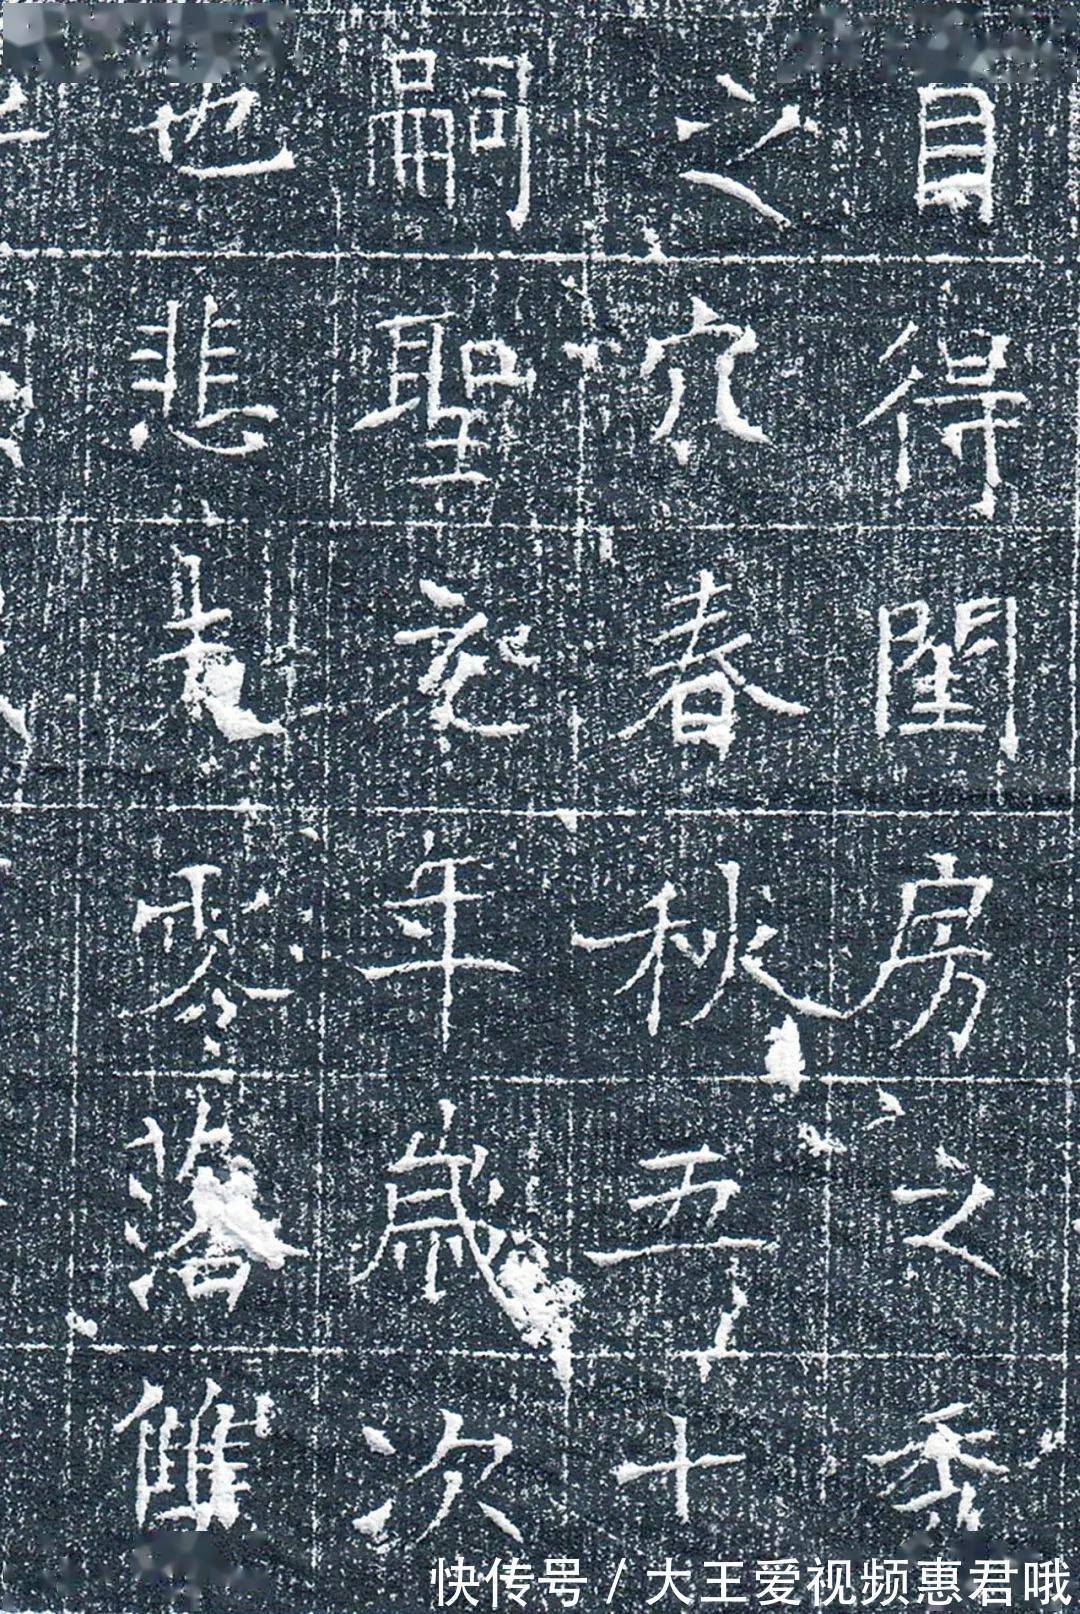 目得閨房之秀
之穴春秋五十
嗣聖年歲次
也悲零落
快传号 / 大王爱视频惠君哦